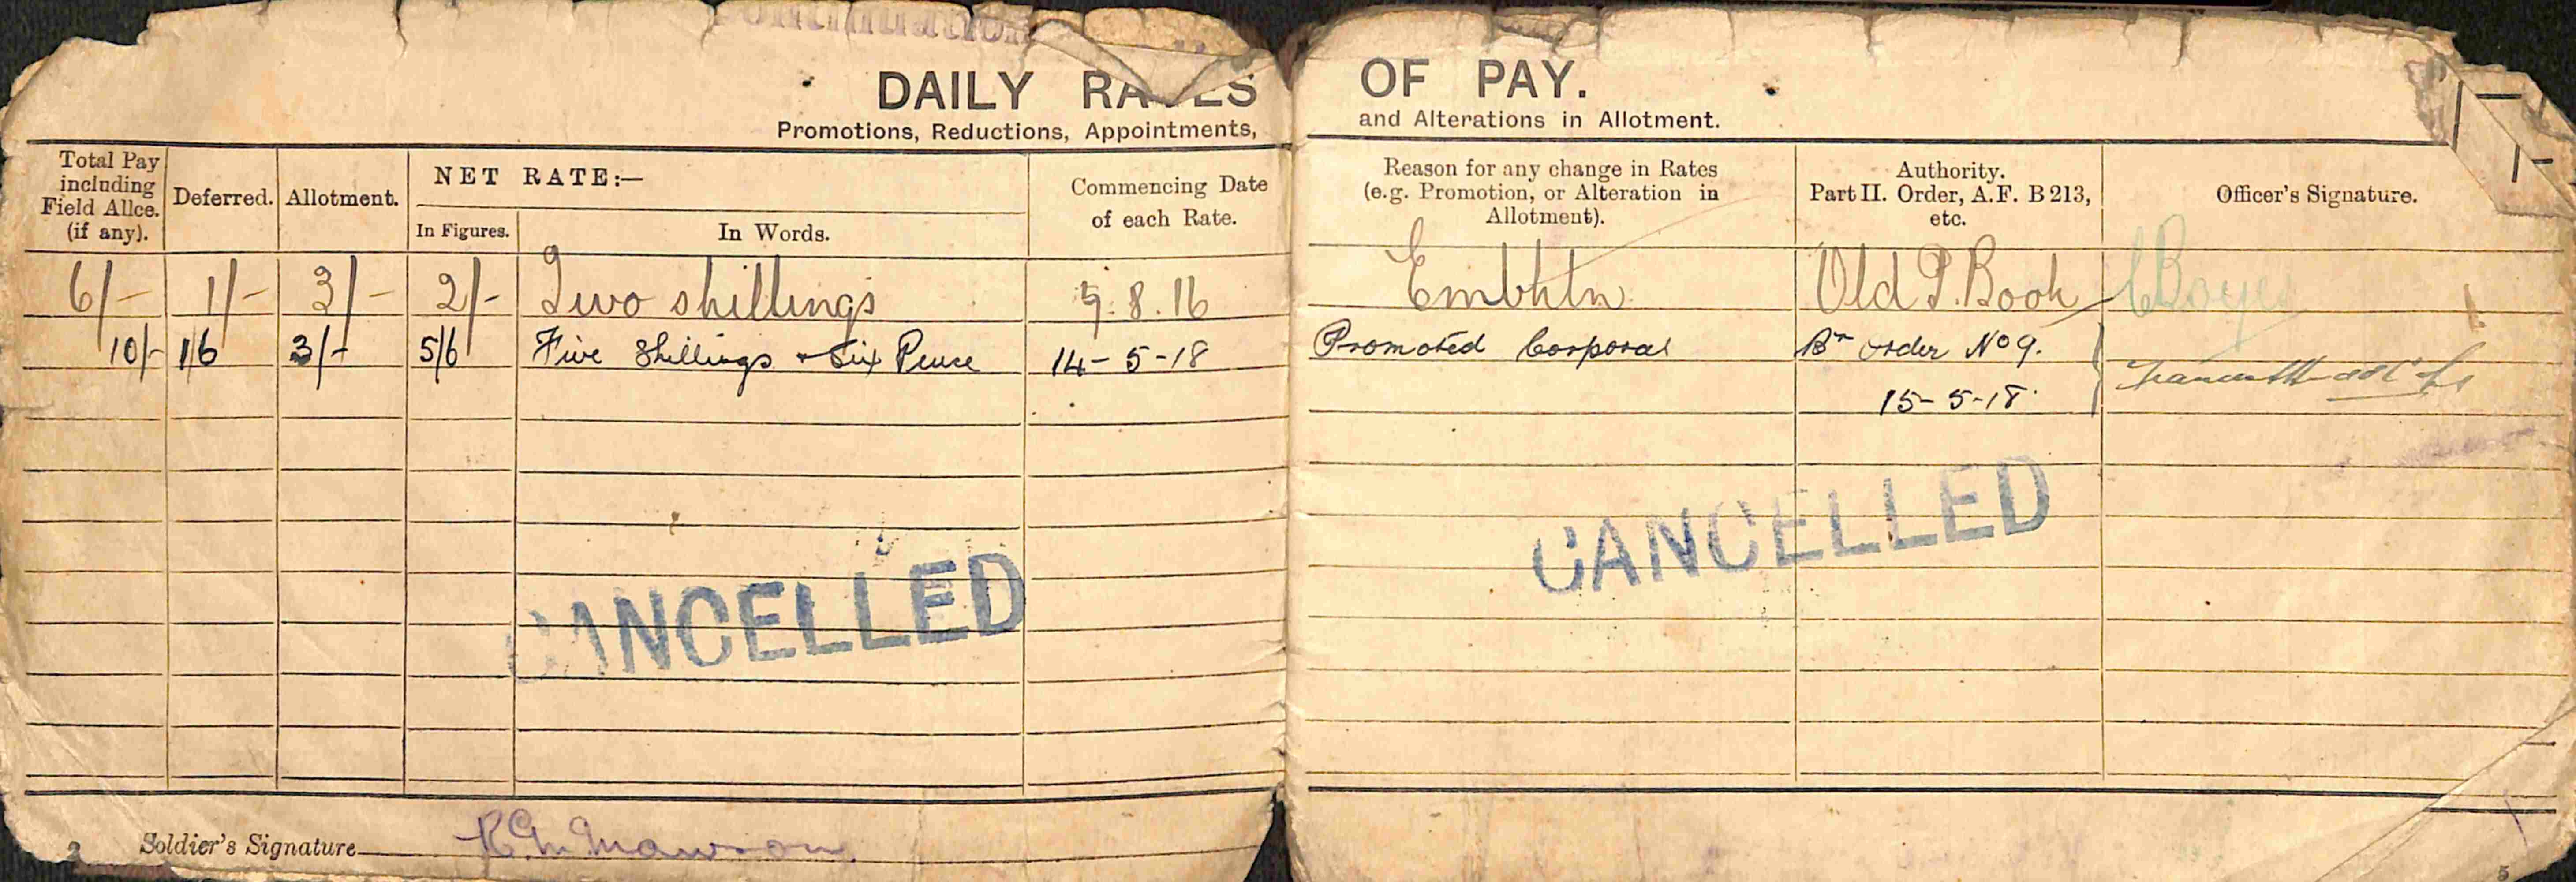 Continuation
DAILY RATES OF PAY.
Promotions, Reductions, Appointments, and Alterations in Allotment.
Total Pay including Field Allce. (if any). Deferred. Allotment. NET RATE:— In Figures. In Words. Commencing Date of each Rate. Reason for any change in Rates (e.g. Promotion, or Alteration in Allotment). Authority. Part II. Order, A.F. B 213, etc. Officer's Signature.
6/- 1/- 3/- 2/- Two shillings 9.8.16 Embktn Old P. Book
10/- 1/6 3/- 5/6 Five Shillings & Six Pence 14-5-18 Promoted Corporal Bn order No 9.
15-5-18.
CANCELLED CANCELLED
Soldier's Signature Mawson
5